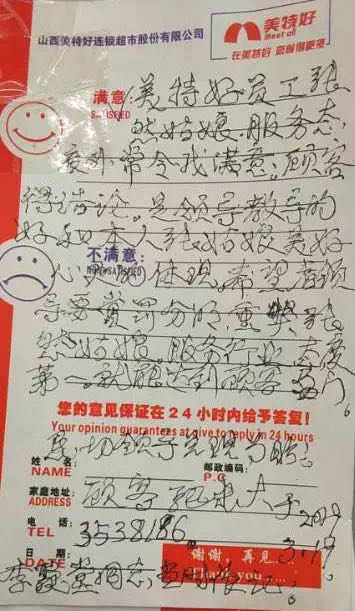 山西美特好连锁超市股份有限公司
美特好
Meet all
在美特好 您得得更多
满意:
SATISFED
美特好员工张
然姑娘.服务态
度非常令我满意.顾客
得结论.是领导教导的
好和本人张姑娘美好
不满意:
心灵的体现.希望
导要赏罚分明,重奖张
然姑娘.服务行业态度
第一.就能达到顾客
您的意见保证在24小时内给予答复!
Your opinion guarantees at give to reply in 24 hours
姓 名:
NAME
邮政编码:
P.C
家庭地址:
ADDRESS
顾客
2019
电 话:
TEL
3538186
3.19.
日 期:
DATE
谢谢,再见
Thank you
同志